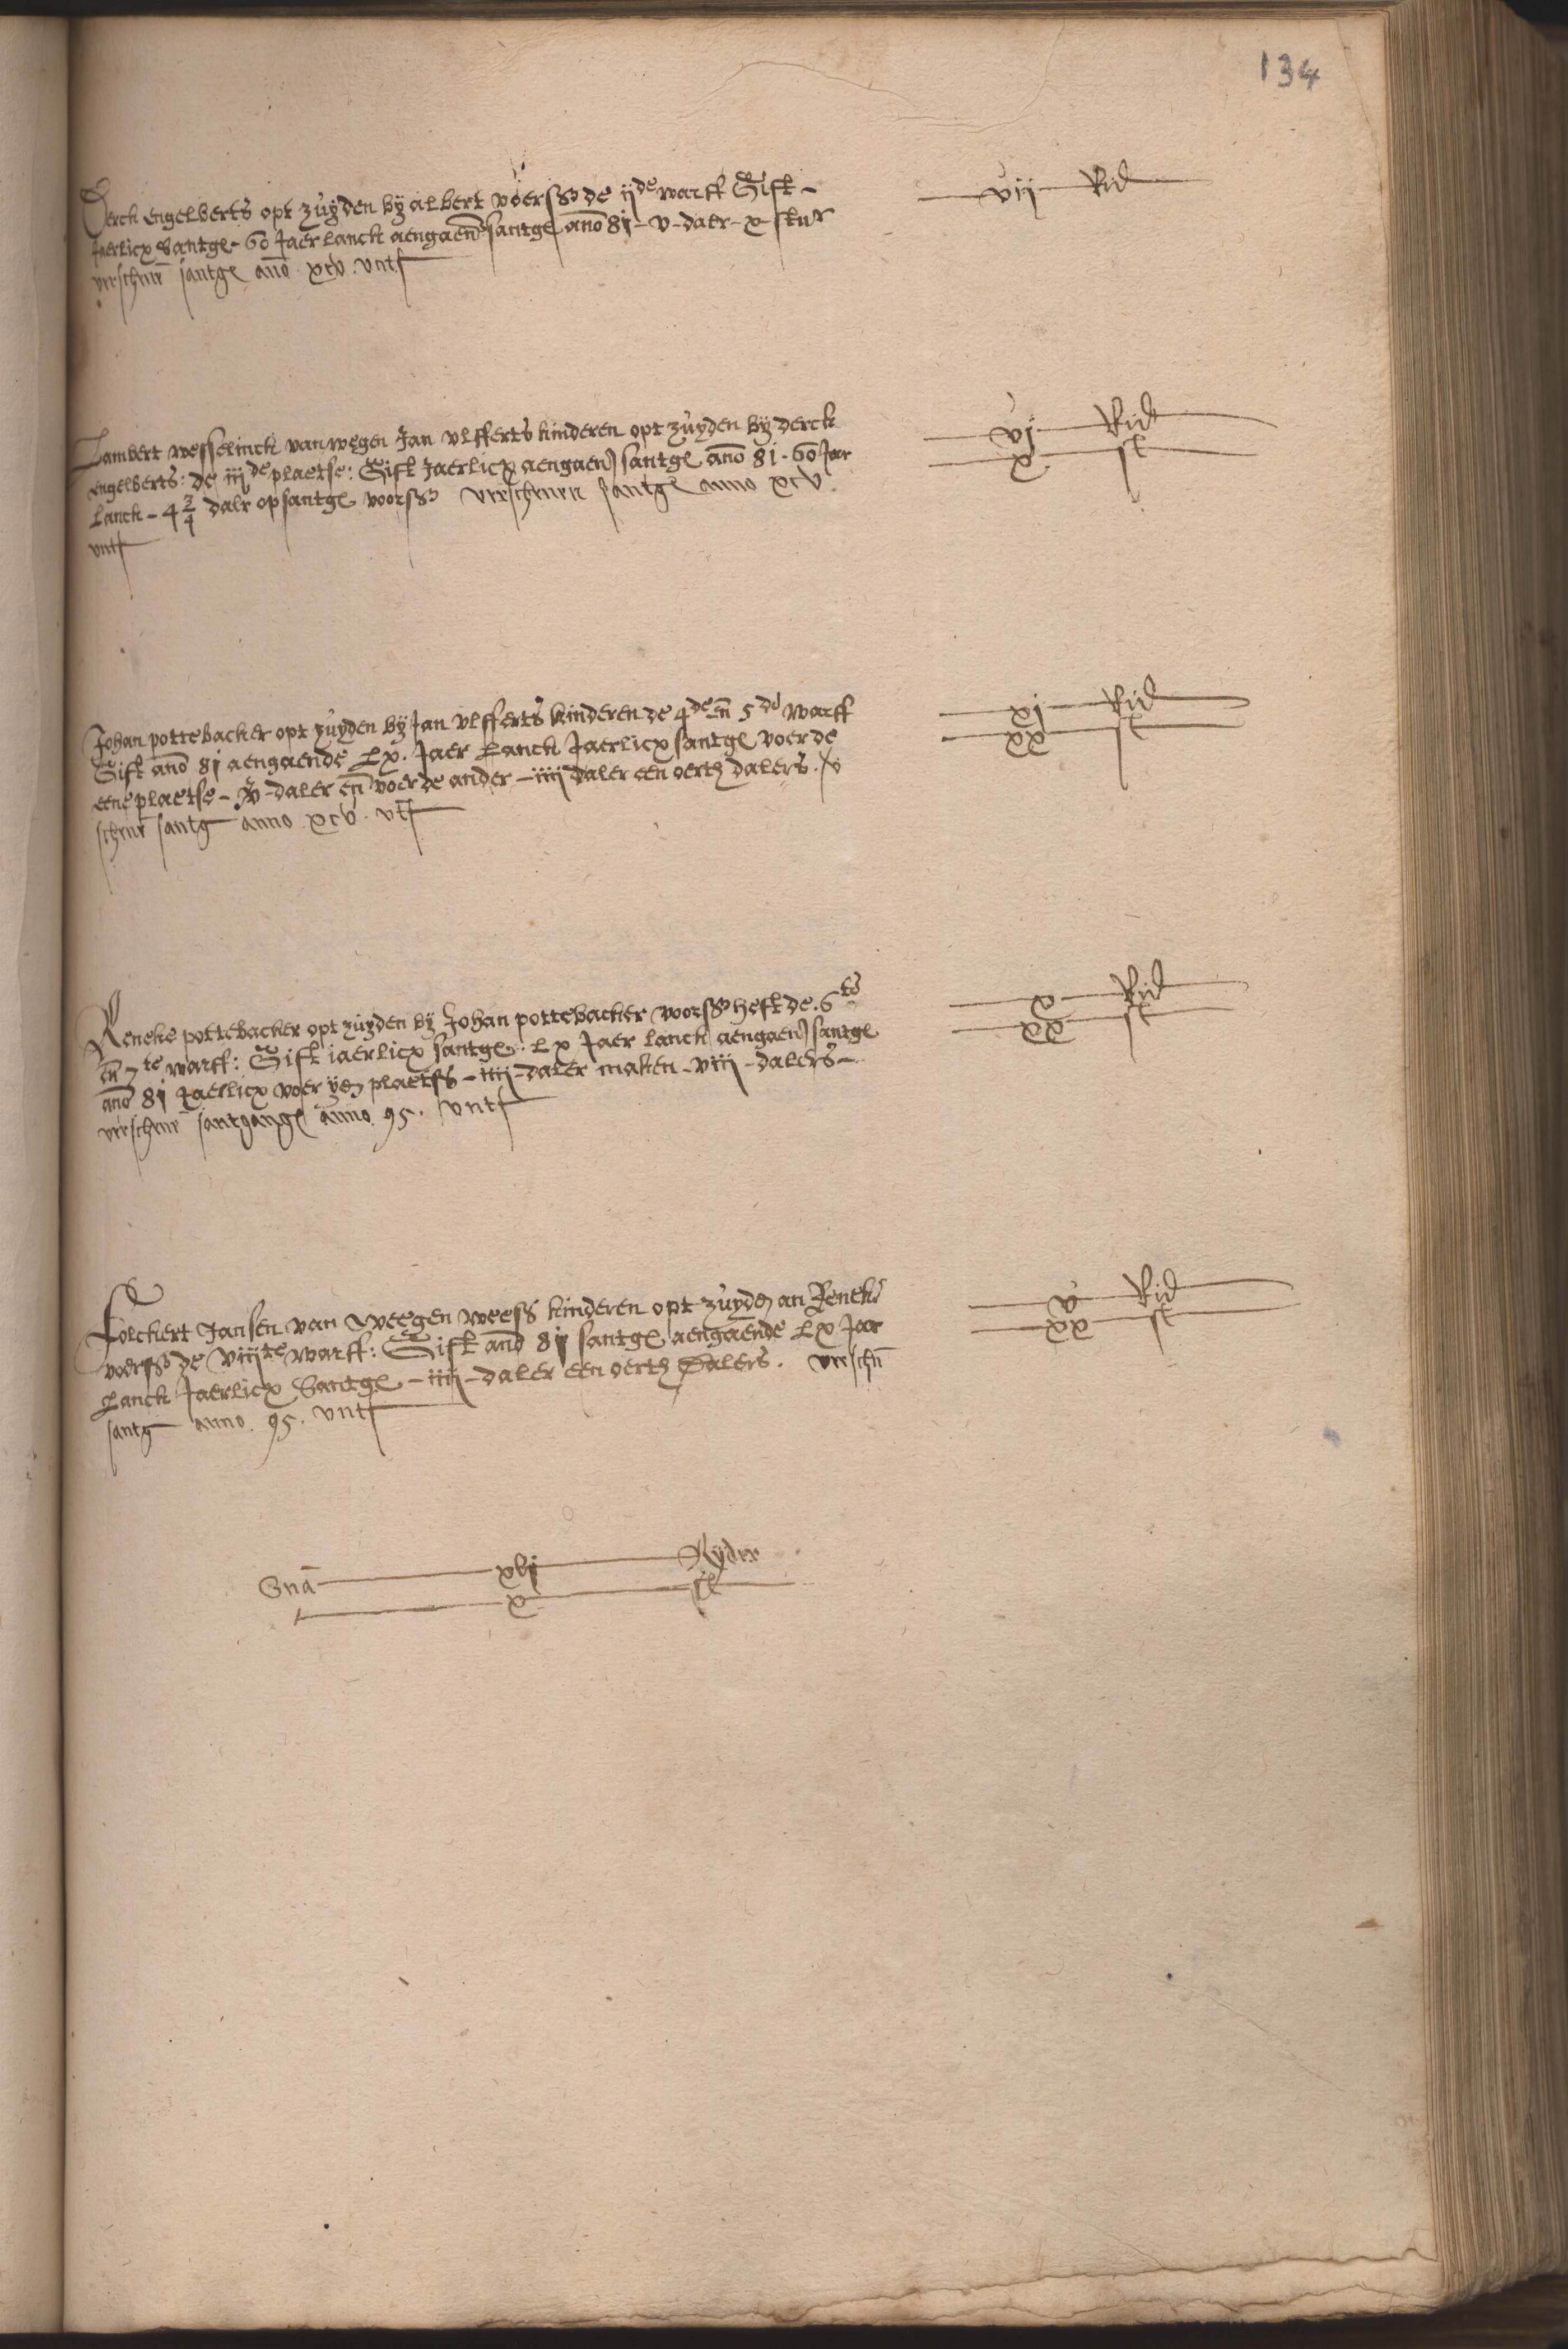 134
Derck engelberts opt zuÿden bÿ albert voerss de ijde warff Gift -
Jaerlicx santge - 60 Jaer lanck aengaen santge ano 81 - v - daler - x - stur
verschene santge ano xcv. vntf
vij Rid
Lambert wesselinck van wegen Jan vlfferts kinderen opt zuÿden bÿ derck
engelberts: de iijde plaetse: Gift Jaerlicx aengaen santge ano 81 - 60 Jaer
lanck - 4 3/4 daler op santge voorss verschenen santge anno xcv
vntf
vj Rid
x st
Johan pottebacker opt zuÿden bÿ Jan vlfferts kinderen de 4de en 5de warff
Gift ano 81 aengaende Lx. Jaer Lanck Jaerlicx santge voer de
eene plaetse - v - daler en voer de ander - iiij daler een oerth dalers. v
schene santg anno xcv. vtf
xj Rid
xx st
Reneke pottebacker opt zuÿden bÿ Johan pottebacker voorss heft de. 6te
en 7te warff: Gift iaerlicx santge. Lx Jaer lanck aengaen santge
ano 81 Jaerlicx voer ÿen plaetss - iiij - daler maken - viij - dalers -
verschene santgange anno 95. vntf
x Rid
xx st
Folckert Jansen van weegen weess kinderen opt zuÿden an Reneke
voerss de viijte warff: Gift ano 81 santge aengaende Lx Jaer
Lanck Jaerlicx santge - iiij - daler een oerth dalers. verschen
santg anno 95. vntf
v Rid
xx st
Sma xlj Rÿder
x st